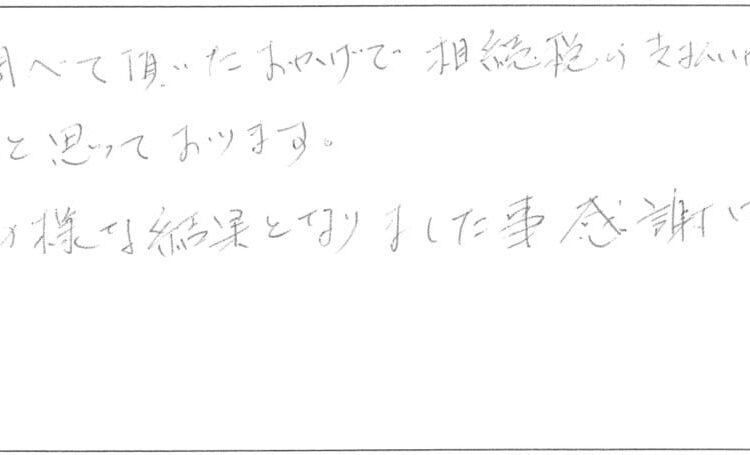 べて頂いたおかげで 相続税の支払い
と思っております。
様な結果となりました事 感謝